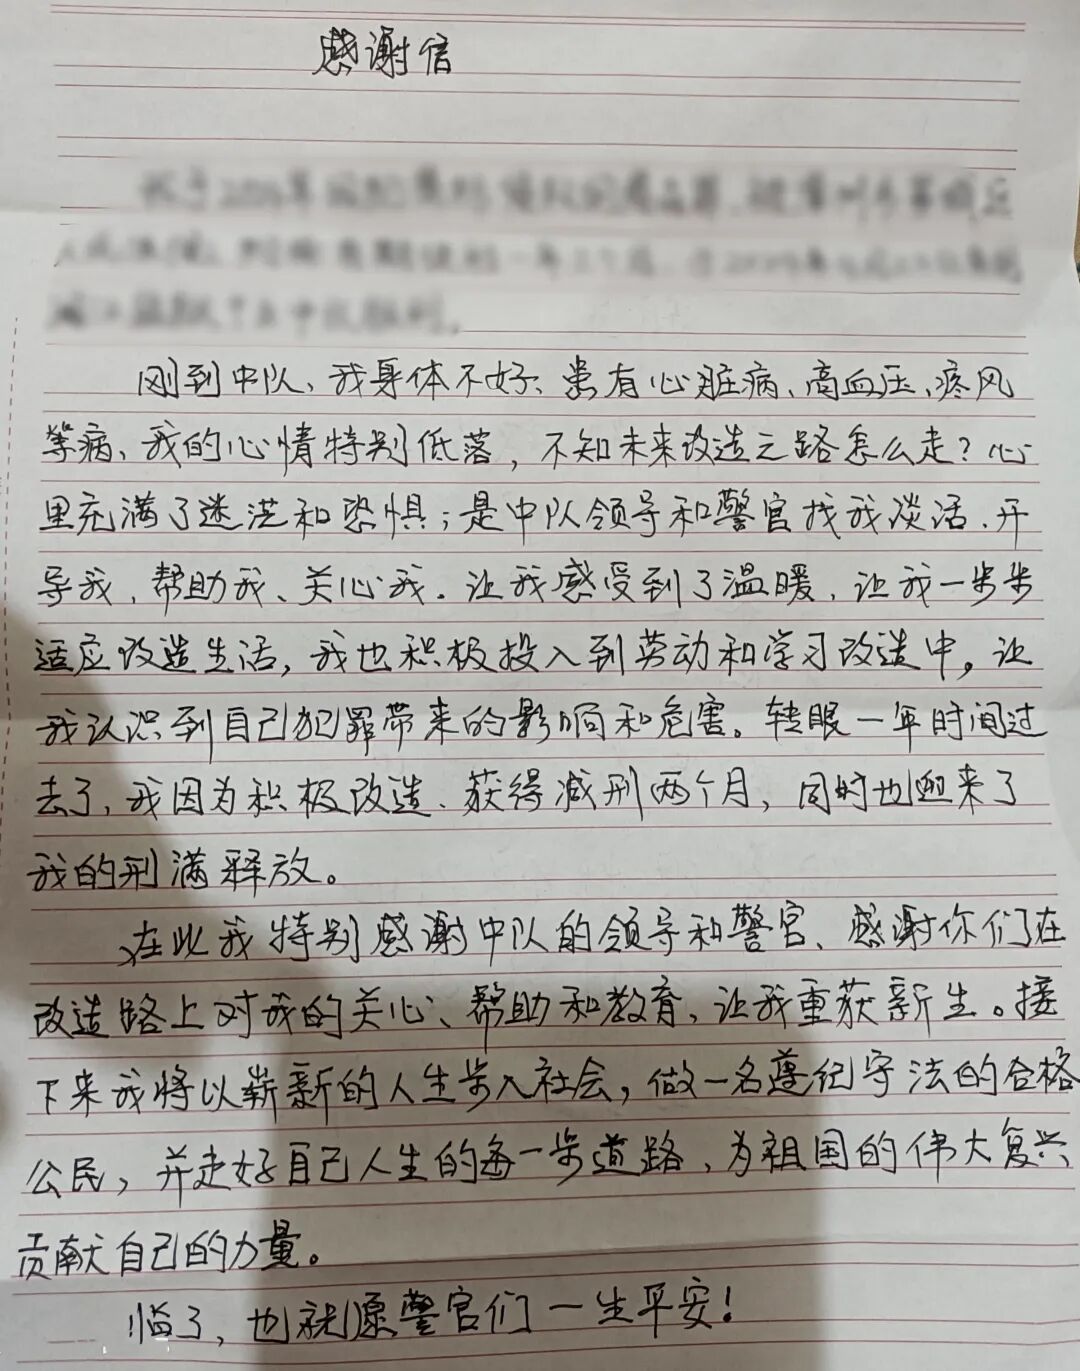 感谢信
刚到中队、我身体不好、患有心脏病、高血压、疼风
等病、我的心情特别低落，不知未来改造之路怎么走？心
里充满了迷茫和恐惧；是中队领导和警官找我谈话、开
导我、帮助我、关心我．让我感受到了温暖，让我一步步
适应改造生活，我也积极投入到劳动和学习改造中。让
我认识到自己犯罪带来的影响和危害。转眼一年时间过
去了，我因为积极改造、获得减刑两个月，同时也迎来了
我的刑满释放。
在此我特别感谢中队的领导和警官、感谢你们在
改造路上对我的关心、帮助和教育，让我重获新生。接
下来我将以崭新的人生步入社会，做一名遵纪守法的合格
公民，并走好自己人生的每一步道路，为祖国的伟大复兴
贡献自己的力量。
临了，也就愿警官们一生平安！